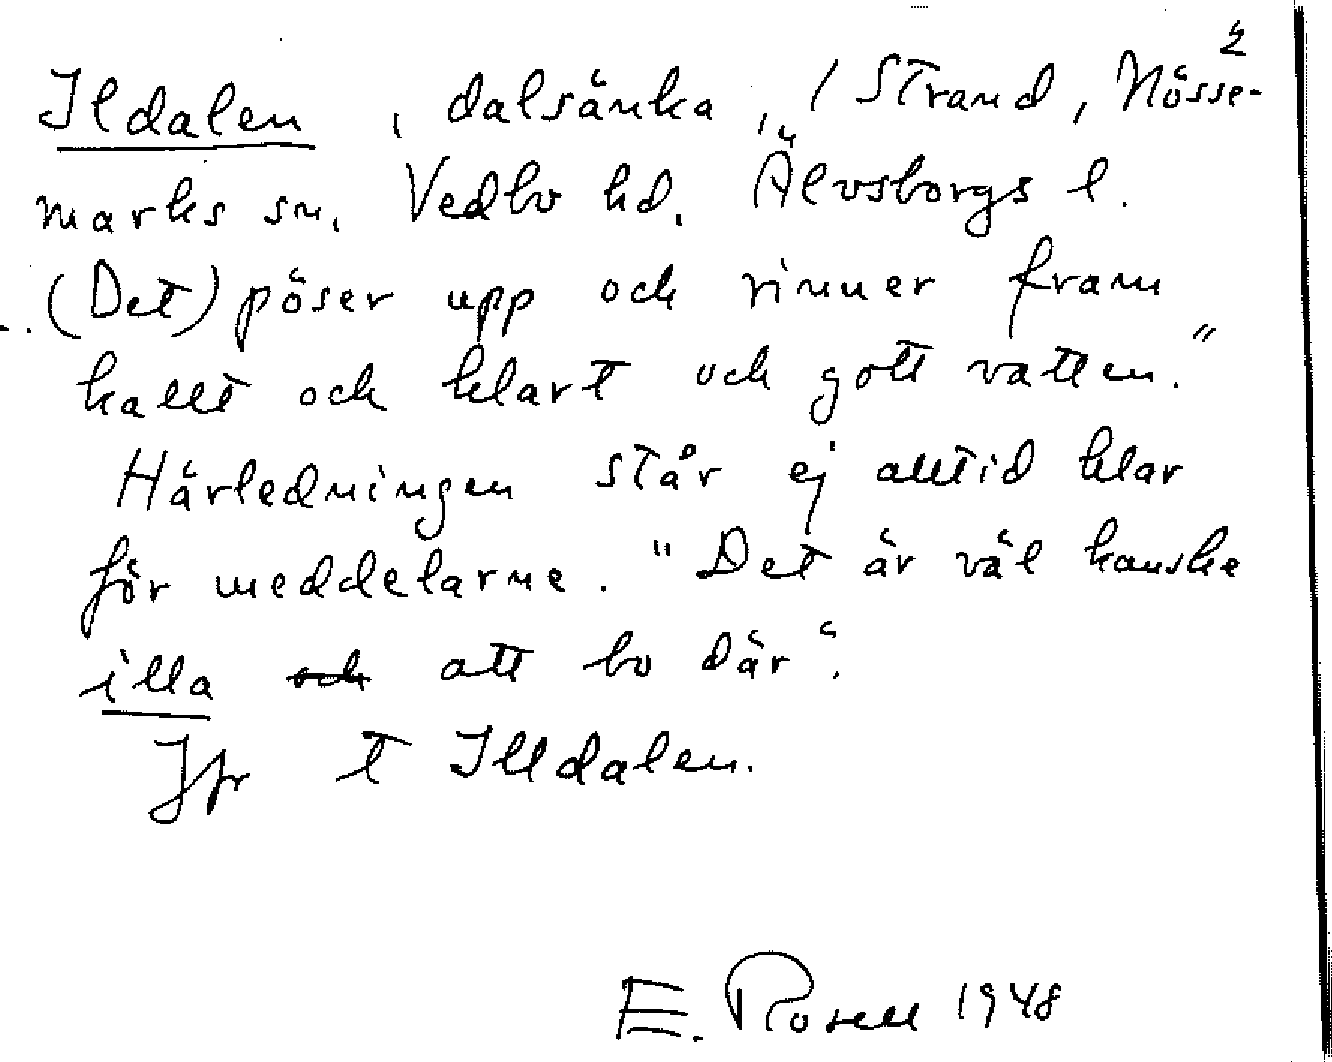 2
Ildalen, dalsänka, / Strand, Nösse-
marks sn, Vedbo hd. Älvsborgs l.
"(Det) pöser upp och rinner fram
kallt och klart och gott vatten."
Härledningen står ej alltid klar
för meddelarne. "Det är väl kanske
illa och att bo där".
Jfr t Illdalen.
E. Rosell 1948